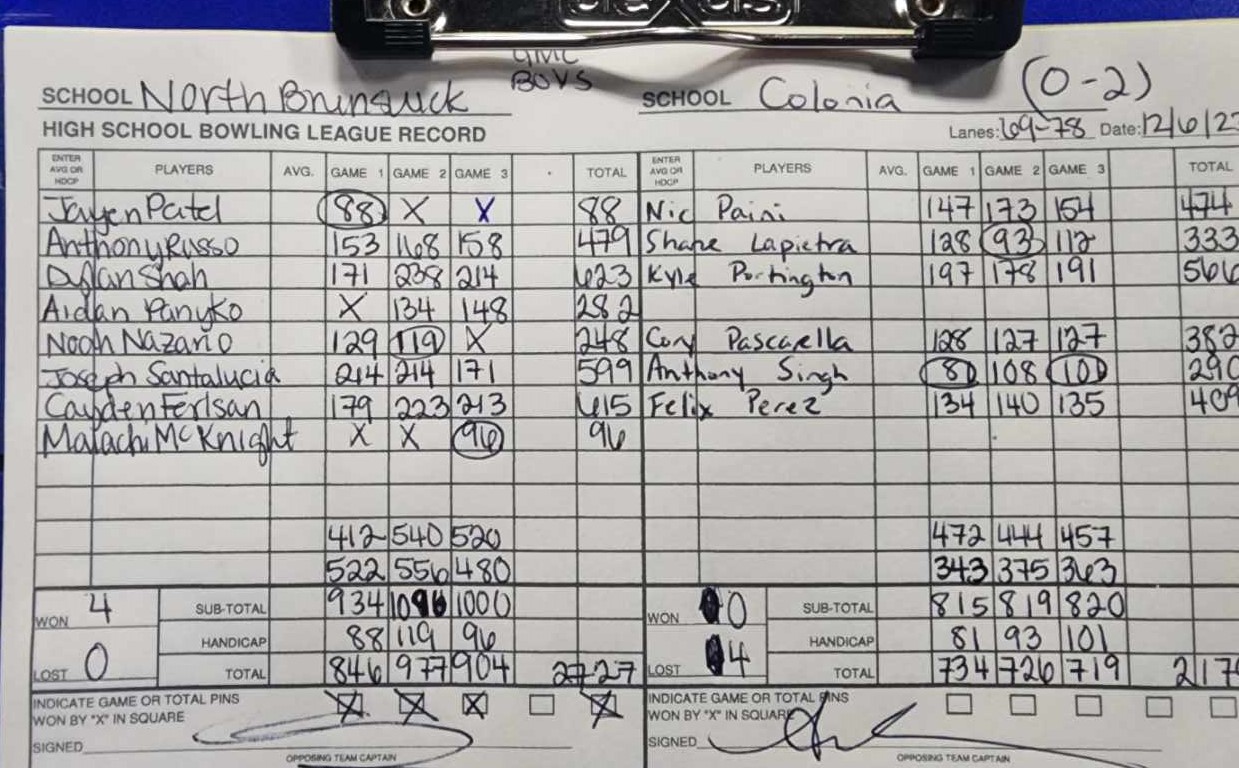 GMC
BOYS
SCHOOL North Brunswick SCHOOL Colonia (0-2)
HIGH SCHOOL BOWLING LEAGUE RECORD Lanes: 69-78 Date: 12/6/23
ENTER AVG OR HDCP PLAYERS AVG. GAME 1 GAME 2 GAME 3 TOTAL ENTER AVG OR HDCP PLAYERS AVG. GAME 1 GAME 2 GAME 3 TOTAL
Jayen Patel 88 X X 88 Nic Paini 147 173 154 474
Anthony Russo 153 168 158 479 Shane Lapietra 128 93 112 333
Dylan Shah 171 238 214 623 Kyle Portington 197 178 191 566
Aidan Panyko X 134 148 282
Noah Nazario 129 119 X 248 Cory Pascarella 128 127 127 382
Joseph Santalucia 214 214 171 599 Anthony Singh 81 108 101 290
Cayden Ferlsan 179 223 213 615 Felix Perez 134 140 135 409
Malachi McKnight X X 96 96
412 540 520 472 444 457
522 556 480 343 375 363
WON 4 SUB-TOTAL 934 1096 1000 WON 0 SUB-TOTAL 815 819 820
HANDICAP 88 119 96 HANDICAP 81 93 101
LOST 0 TOTAL 846 977 904 2727 LOST 4 TOTAL 734 726 719 217
INDICATE GAME OR TOTAL PINS X X X X INDICATE GAME OR TOTAL PINS
WON BY "X" IN SQUARE WON BY "X" IN SQUARE
SIGNED SIGNED
OPPOSING TEAM CAPTAIN OPPOSING TEAM CAPTAIN